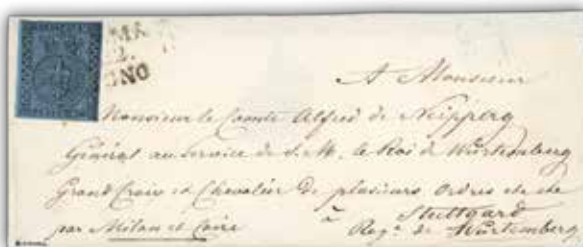 MA
2.
GNO
A Monsieur
Monsieur le Comte Alfred de Neipperg
Général au service de S. M. le Roi de Würtemberg
Grand Croix et Chevalier de plusieurs ordres etc etc
par Milan et Coire
Stuttgard
Roy.e de Würtemberg